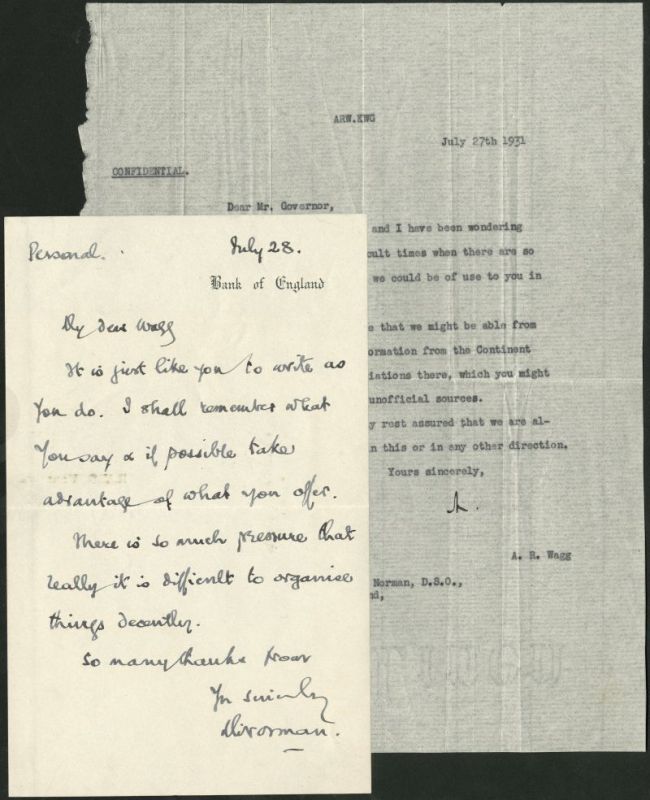 ARW.KWG
July 27th 1931
CONFIDENTIAL.
Dear Mr. Governor,
and I have been wondering
cult times when there are so
we could be of use to you in
e that we might be able from
ormation from the Continent
iations there, which you might
unofficial sources.
y rest assured that we are al-
n this or in any other direction.
Yours sincerely,
A.
A. R. Wagg
Norman, D.S.O.,
nd,
Personal.
July 28.
Bank of England
My dear Wagg
It is just like you to write as
you do. I shall remember what
you say & if possible take
advantage of what you offer.
There is so much pressure that
really it is difficult to organise
things decently.
So many thanks from
Yr sincerely
MNorman.